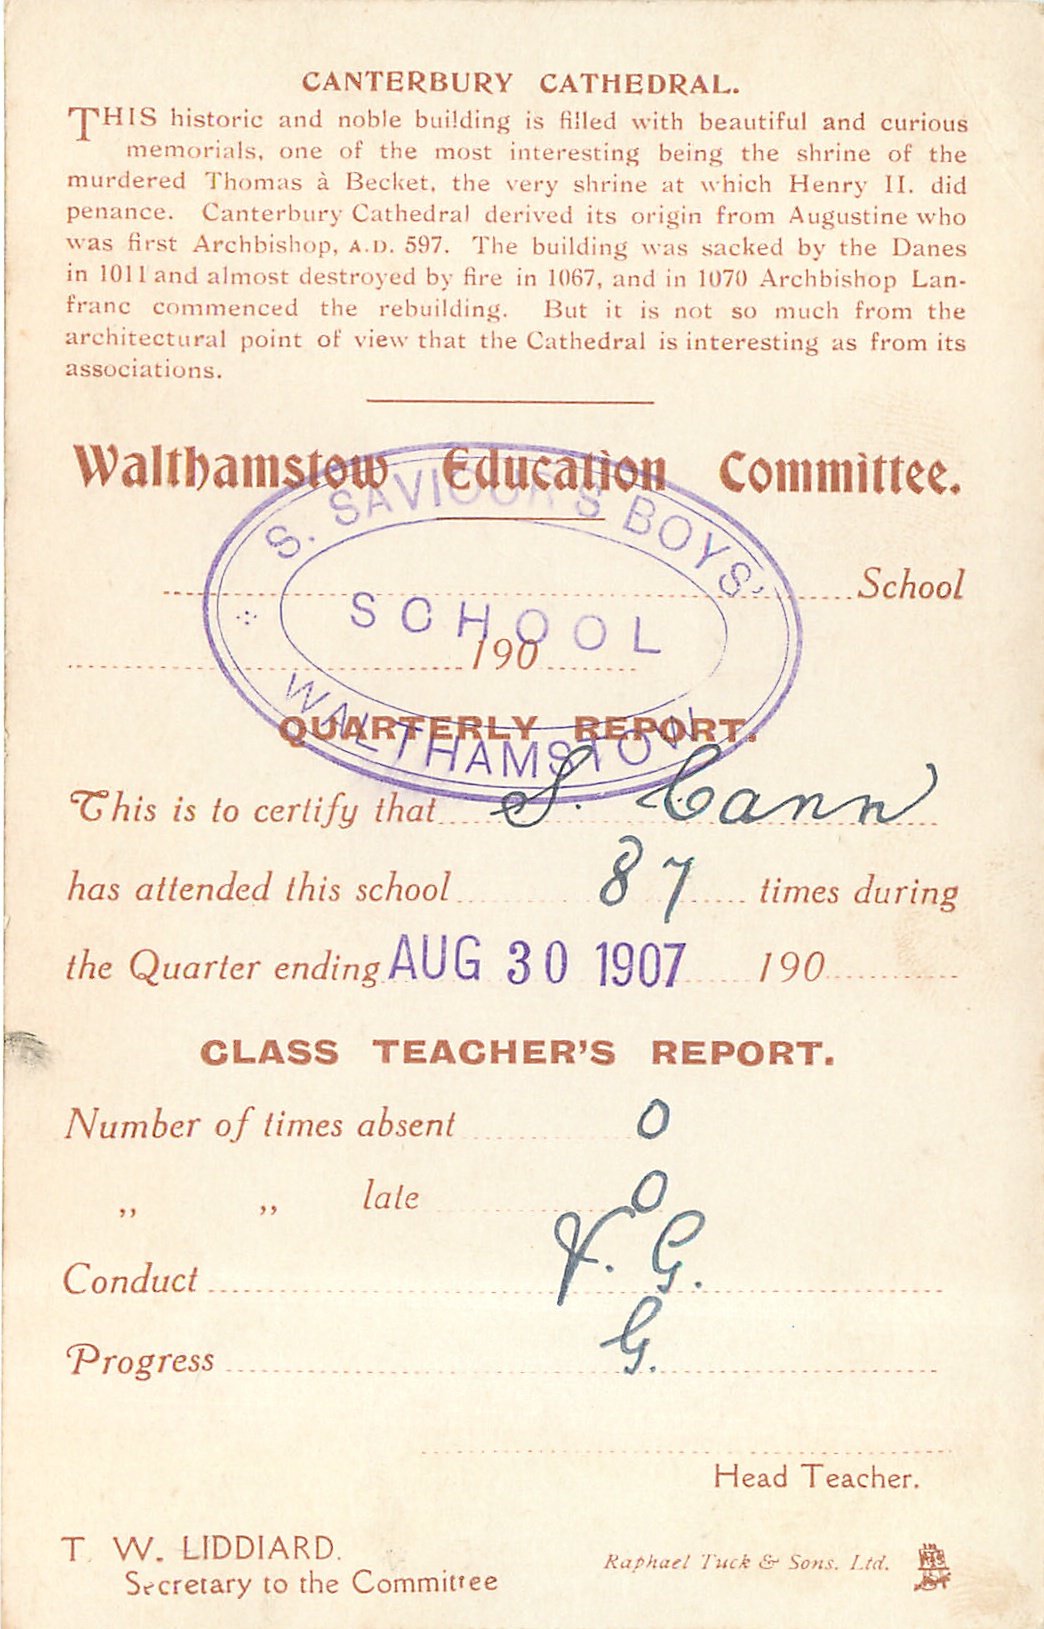 CANTERBURY CATHEDRAL.
THIS historic and noble building is filled with beautiful and curious
memorials, one of the most interesting being the shrine of the
murdered Thomas à Becket, the very shrine at which Henry II. did
penance. Canterbury Cathedral derived its origin from Augustine who
was first Archbishop, A.D. 597. The building was sacked by the Danes
in 1011 and almost destroyed by fire in 1067, and in 1070 Archbishop Lan-
franc commenced the rebuilding. But it is not so much from the
architectural point of view that the Cathedral is interesting as from its
associations.
Walthamstow Education Committee.
S. SAVIOUR'S BOYS'
School
SCHOOL
190
WALTHAMSTOW
QUARTERLY REPORT.
This is to certify that S. Cann
has attended this school 87 times during
the Quarter ending AUG 30 1907 190
CLASS TEACHER'S REPORT.
Number of times absent 0
„ „ late 0
Conduct V. G.
Progress G.
Head Teacher.
T. W. LIDDIARD.
Secretary to the Committee
Raphael Tuck & Sons. Ltd.